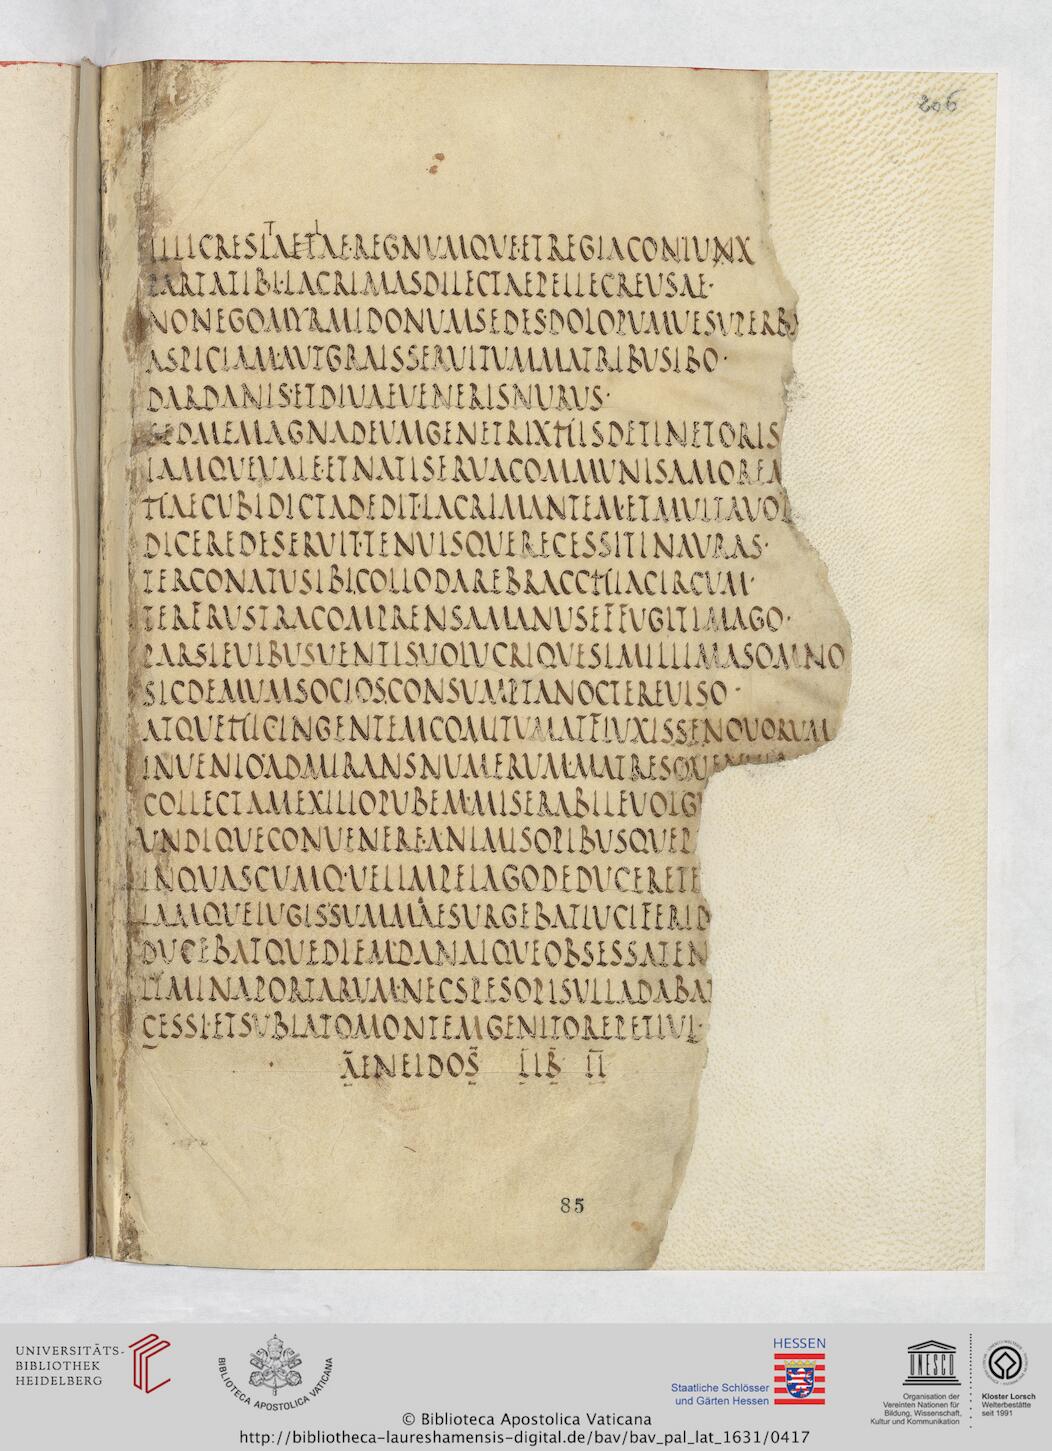 206
ILLICRESLAETAE·REGNUMQUE·ETREGIACONIUNX
T L
PARTATIBI·LACRIMASDILECTAEPELLECREUSAE·
NONEGOMYRMIDONUMSEDES·DOLOPUMUESUPERB
ASPICIAM·AUTGRAISSERUITUMMATRIBUSIBO·
DARDANIS·ETDIUAEUENERISNURUS·
SEDMEMAGNADEUMGENETRIXHISDETINETORIS
IAMQUEUALE·ETNATISERUACOMMUNISAMOREM
HAECUBIDICTADEDIT·LACRIMANTEM·ETMULTAUOL
DICEREDESERUIT·TENUISQUERECESSITINAURAS·
TERCONATUSIBI·COLLODAREBRACCHIACIRCUM·
TERFRUSTRACOMPRENSAMANUSEFFUGITIMAGO·
PARSLEUIBUSUENTISUOLUCRIQUESIMILLIMASOMNO
SICDEMUMSOCIOS·CONSUMPTANOCTEREUISO·
ATQUEHICINGENTEMCOMITUMATFLUXISSENOUORUM
INUENIO·ADMIRANSNUMERUM·MATRESQUE
COLLECTAMEXILIOPUBEM·MISERABILEUOLG
UNDIQUECONUENERE·ANIMISOPIBUSQUEP
INQUASCUMQ·UELIMPELAGODEDUCERETE
IAMQUEIUGISSUMMAESURGEBATLUCIFERID
DUCEBATQUEDIEM·DANAIQUEOBSESSATEN
LIMINAPORTARUM·NECSPESOPISULLADABA
CESSI·ETSUBLATOMONTEMGENITOREPETIUI·
AENEIDOS LIB II
85
UNIVERSITÄTS-
BIBLIOTHEK
HEIDELBERG
BIBLIOTECA APOSTOLICA VATICANA
HESSEN
Staatliche Schlösser
und Gärten Hessen
UNESCO
Organisation der
Vereinten Nationen für
Bildung, Wissenschaft,
Kultur und Kommunikation
Kloster Lorsch
Welterbestätte
seit 1991
© Biblioteca Apostolica Vaticana
http://bibliotheca-laureshamensis-digital.de/bav/bav_pal_lat_1631/0417